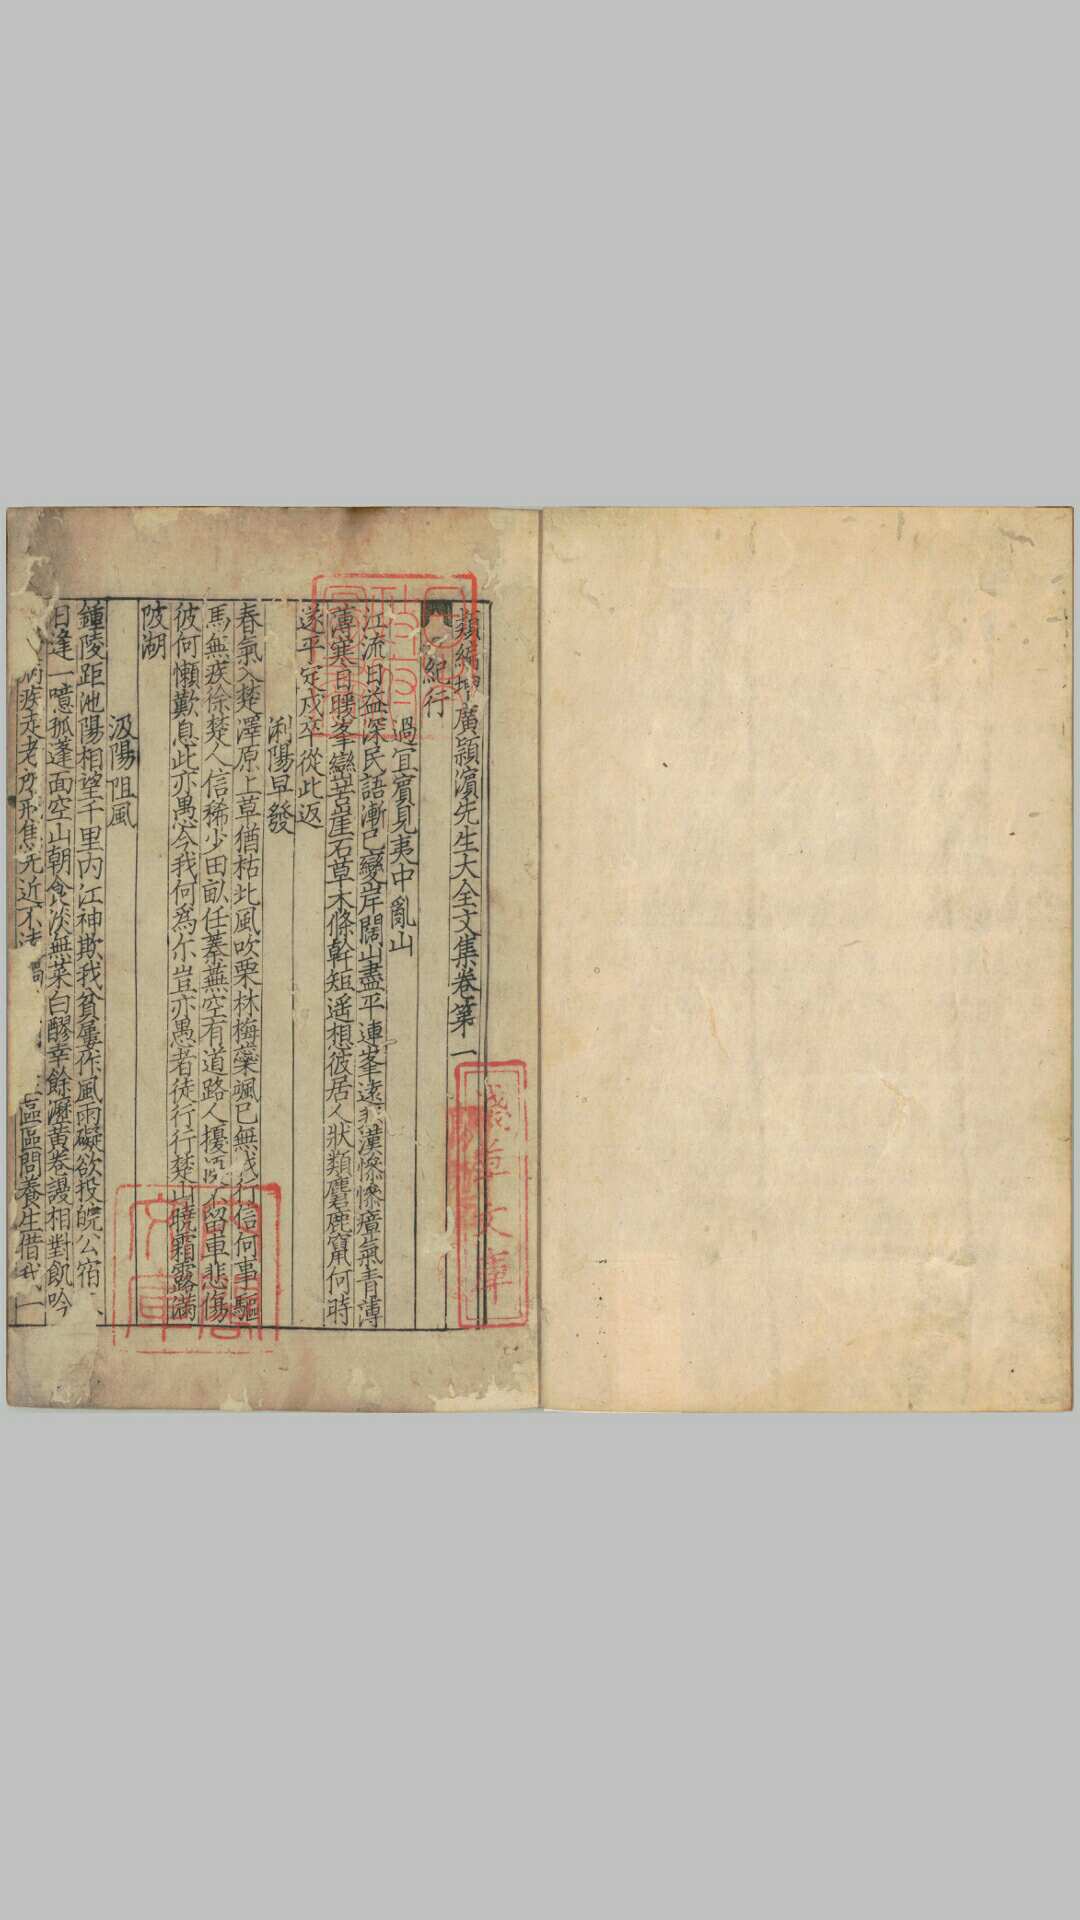 類編增廣潁濱先生大全文集卷第一
紀行
過宜賓見夷中亂山
江流日益深民語漸已變岸闊山盡平連峯遠漢慘慘瘴氣青薄
薄寒日暖峯巒若崖石草木條幹短遥想彼居人狀類麕鹿竄何時
遂平定戍卒從此返
浰陽早發
春氣入楚澤原上草猶枯北風吹栗林梅蘂颯已無我行信何事驅
馬無疾徐楚人信稀少田畝任蓁蕪空有道路人擾不留車悲傷
彼何懶歎息此亦愚今我何爲尓豈亦愚者徒行行楚山曉霜露滿
陂湖
汲陽阻風
鍾陵距池陽相望千里內江神欺我貧屢作風雨礙欲投皖公宿
日逢一噫孤蓬面空山朝食淡無菜白醪幸餘瀝黃卷謾相對飢吟
疾走老形焦近不區區問養生借我一
淺草文庫